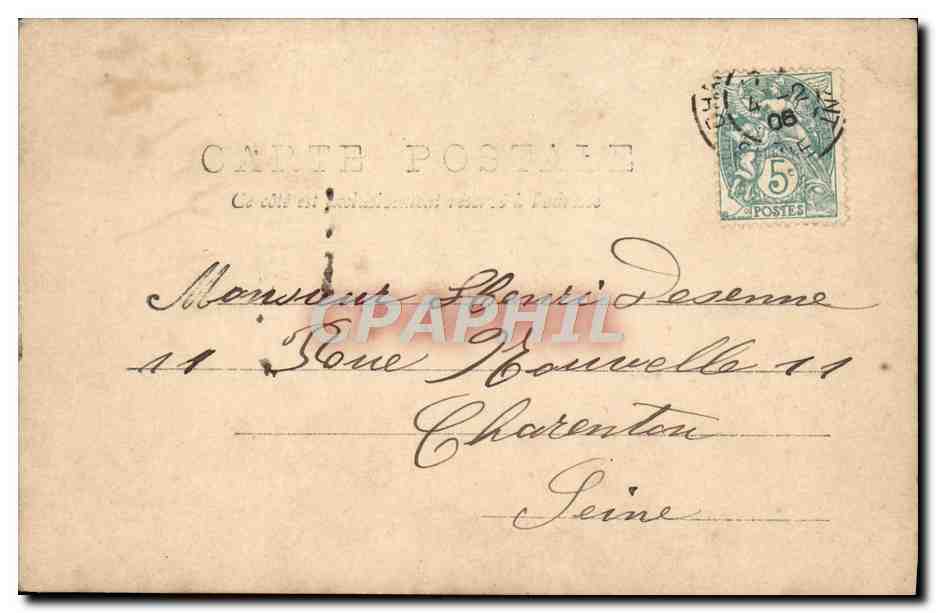 CARTE POSTALE
Ce côté est exclusivement réservé à l'adresse
5c
POSTES
4
06
Monsieur Henri Desenne
11 Rue Nouvelle 11
Charenton
Seine
CPAPHIL